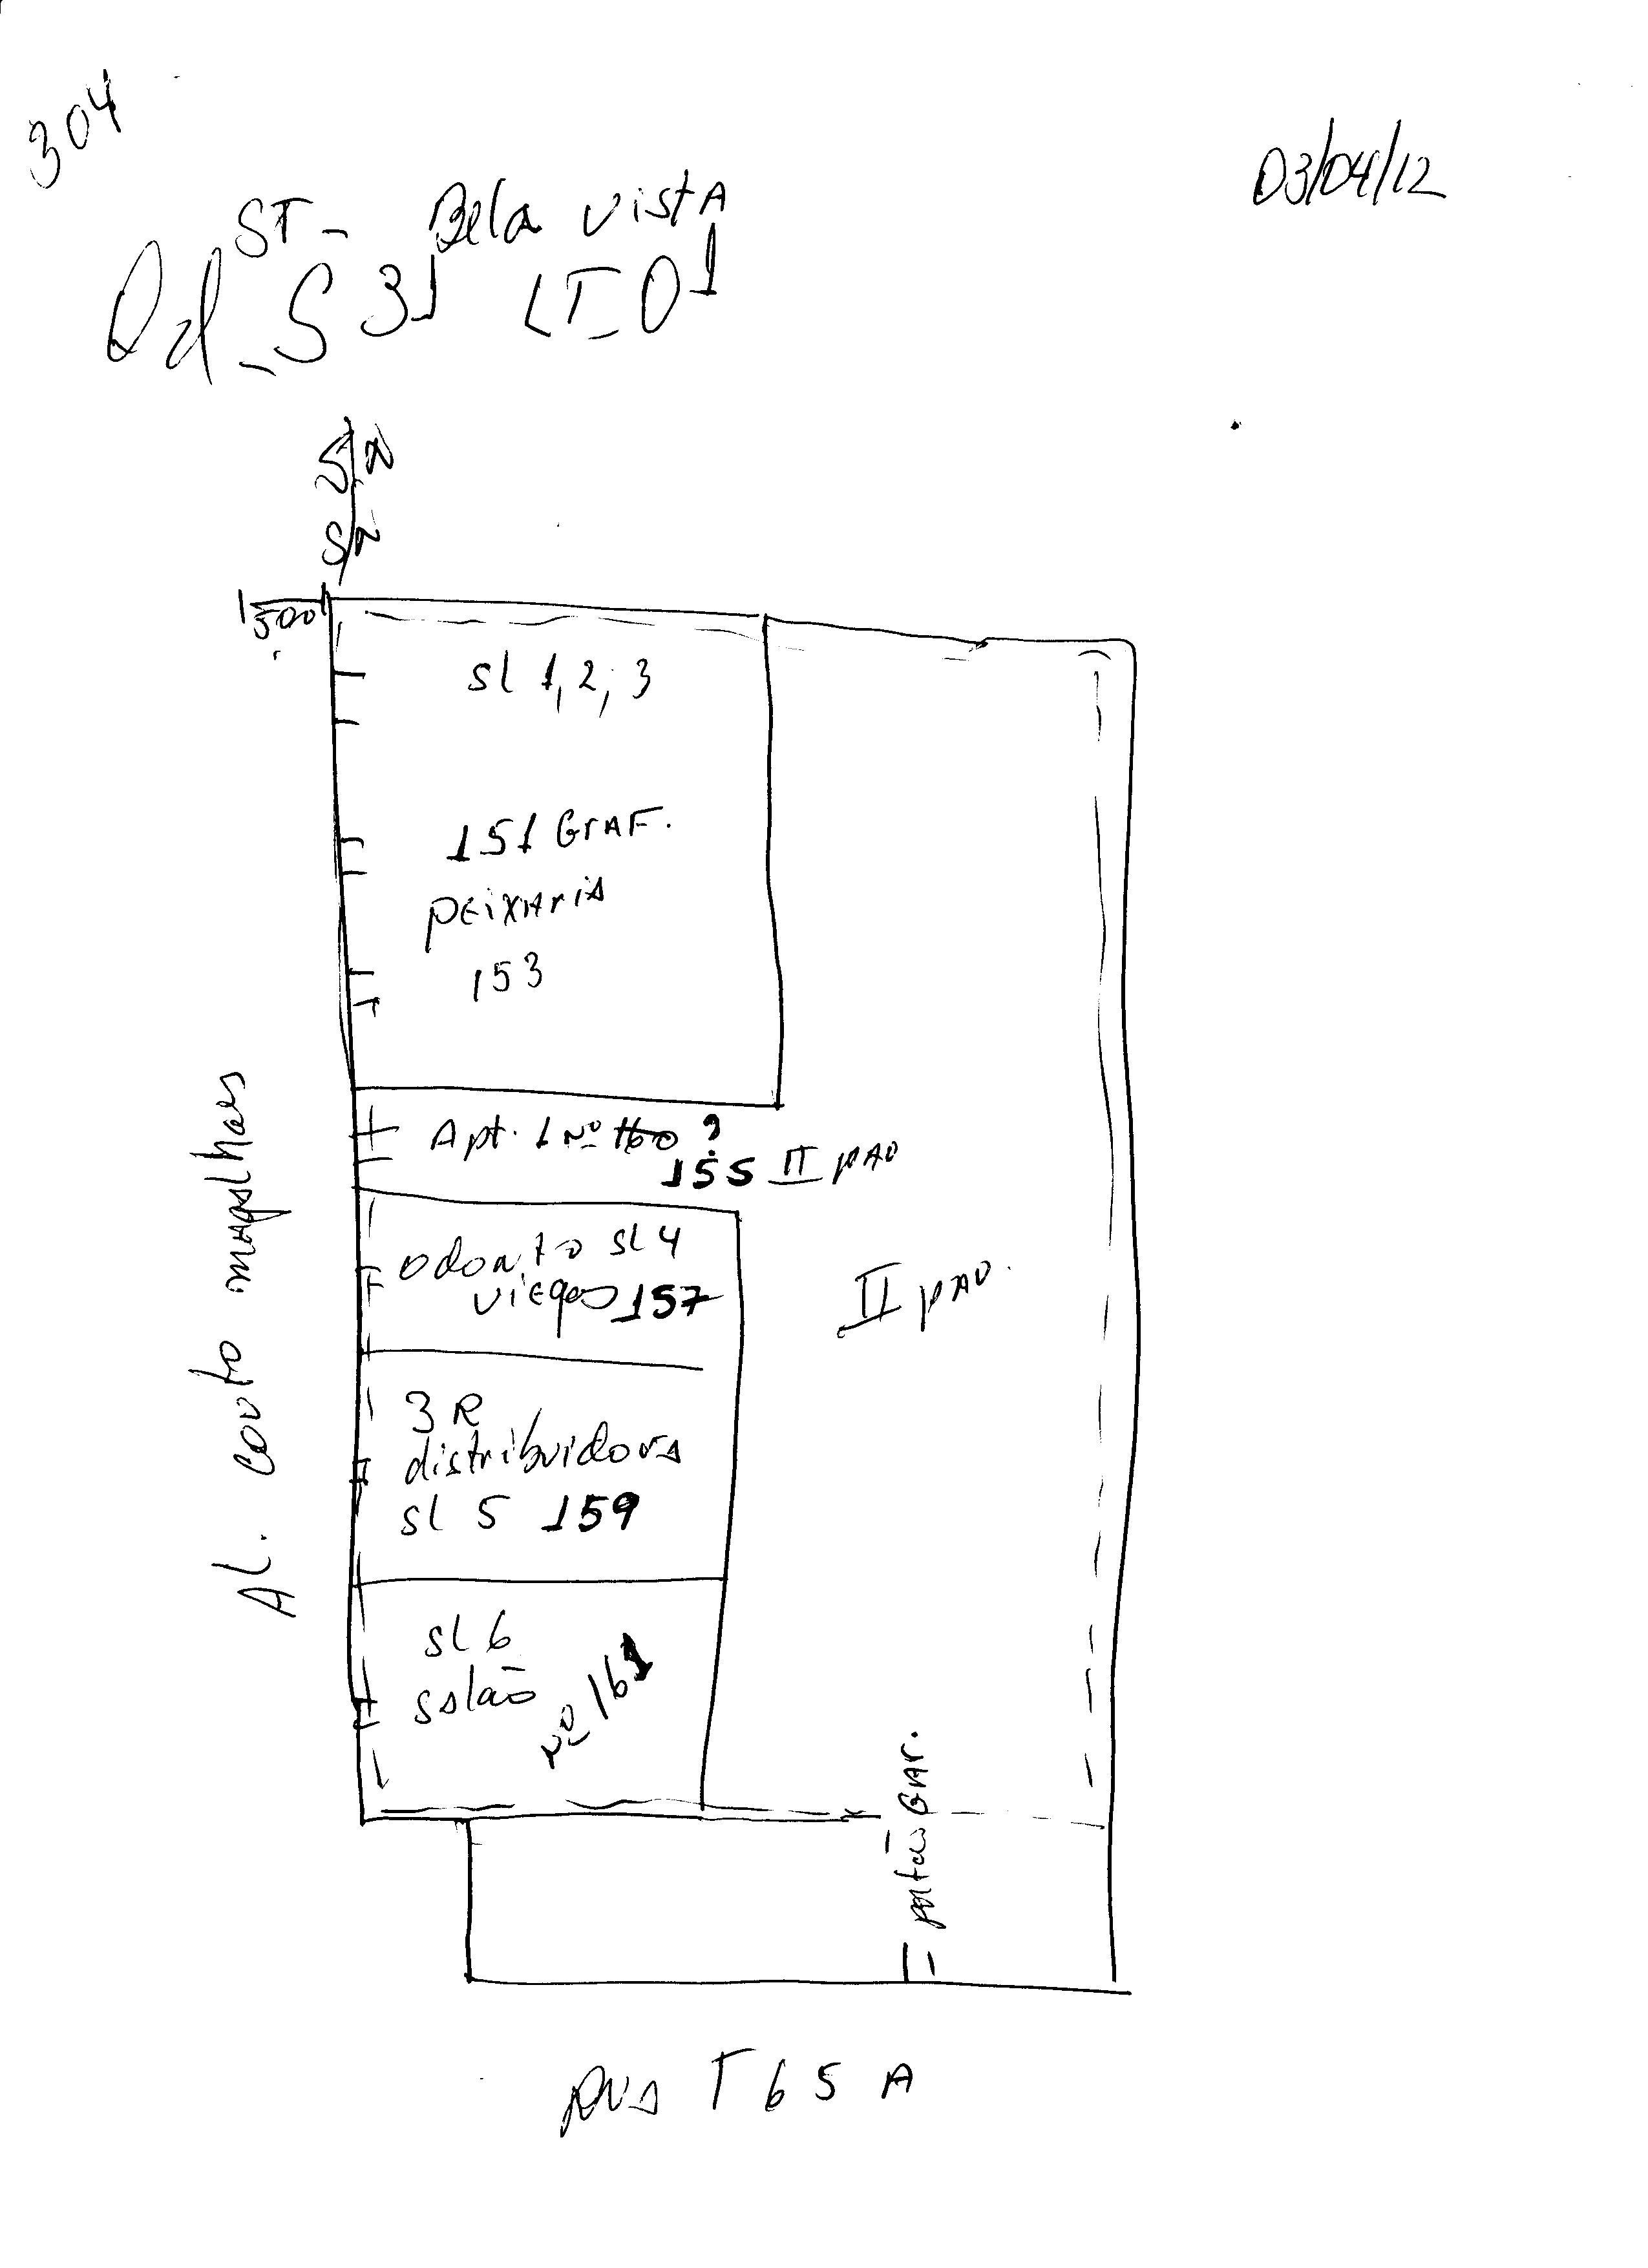 304
03/04/12
ST- Bela vistA
Qd-S31 LT-01
S/N
S/N
500
sl 1, 2, 3
151 GrAF.
pEixAriA
153
Apt. 1 Nº 160 ?
155 II pAv
odonto sl 4
viegas 157
II pAv.
3 R
distribuidora
sl 5 159
sl 6
salão
Nº 161
Al. couto magalhaes
portão GAr.
rua T 65 A